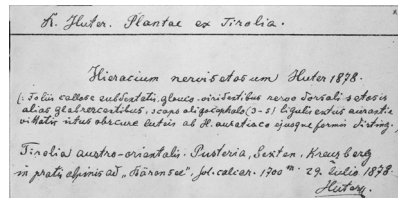 R. Huter. Plantae ex Tirolia.
Hieracium nervisetosum Huter 1878.
(: foliis callose subdentatis, glauco-viridentibus nervo dorsali setosis
alias glabrescentibus, scapo oligocephalo (3-5) ligulis extus aurantio
vittatis intus obscure luteis ab H. aurantiaco ejusque formis disting.
Tirolia austro-orientalis. Pusteria, Sexten, Kreuzberg
in pratis alpinis ad „ sol. calcar. 1700 m. 29. Julio 1878.
Huter.